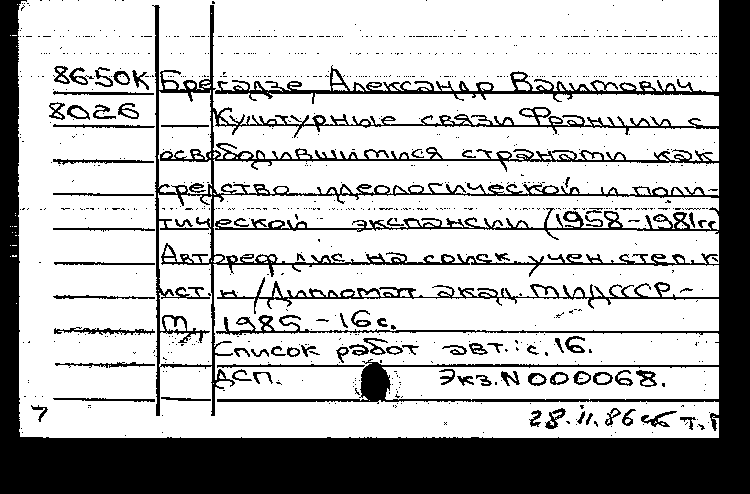 86-50К Брегадзе, Александр Вадимович
8026 Культурные связи Франции с
освободившимися странами как
средство идеологической и поли-
тической экспансии (1958-1981гг)
Автореф. дис. на соиск. учен. степ. к
ист. н. / Дипломат. акад. МИД СССР.-
М., 1985. - 16 с.
Список работ авт.: с. 16.
ДСП. Экз. N 000068.
7 28.II.86 т.